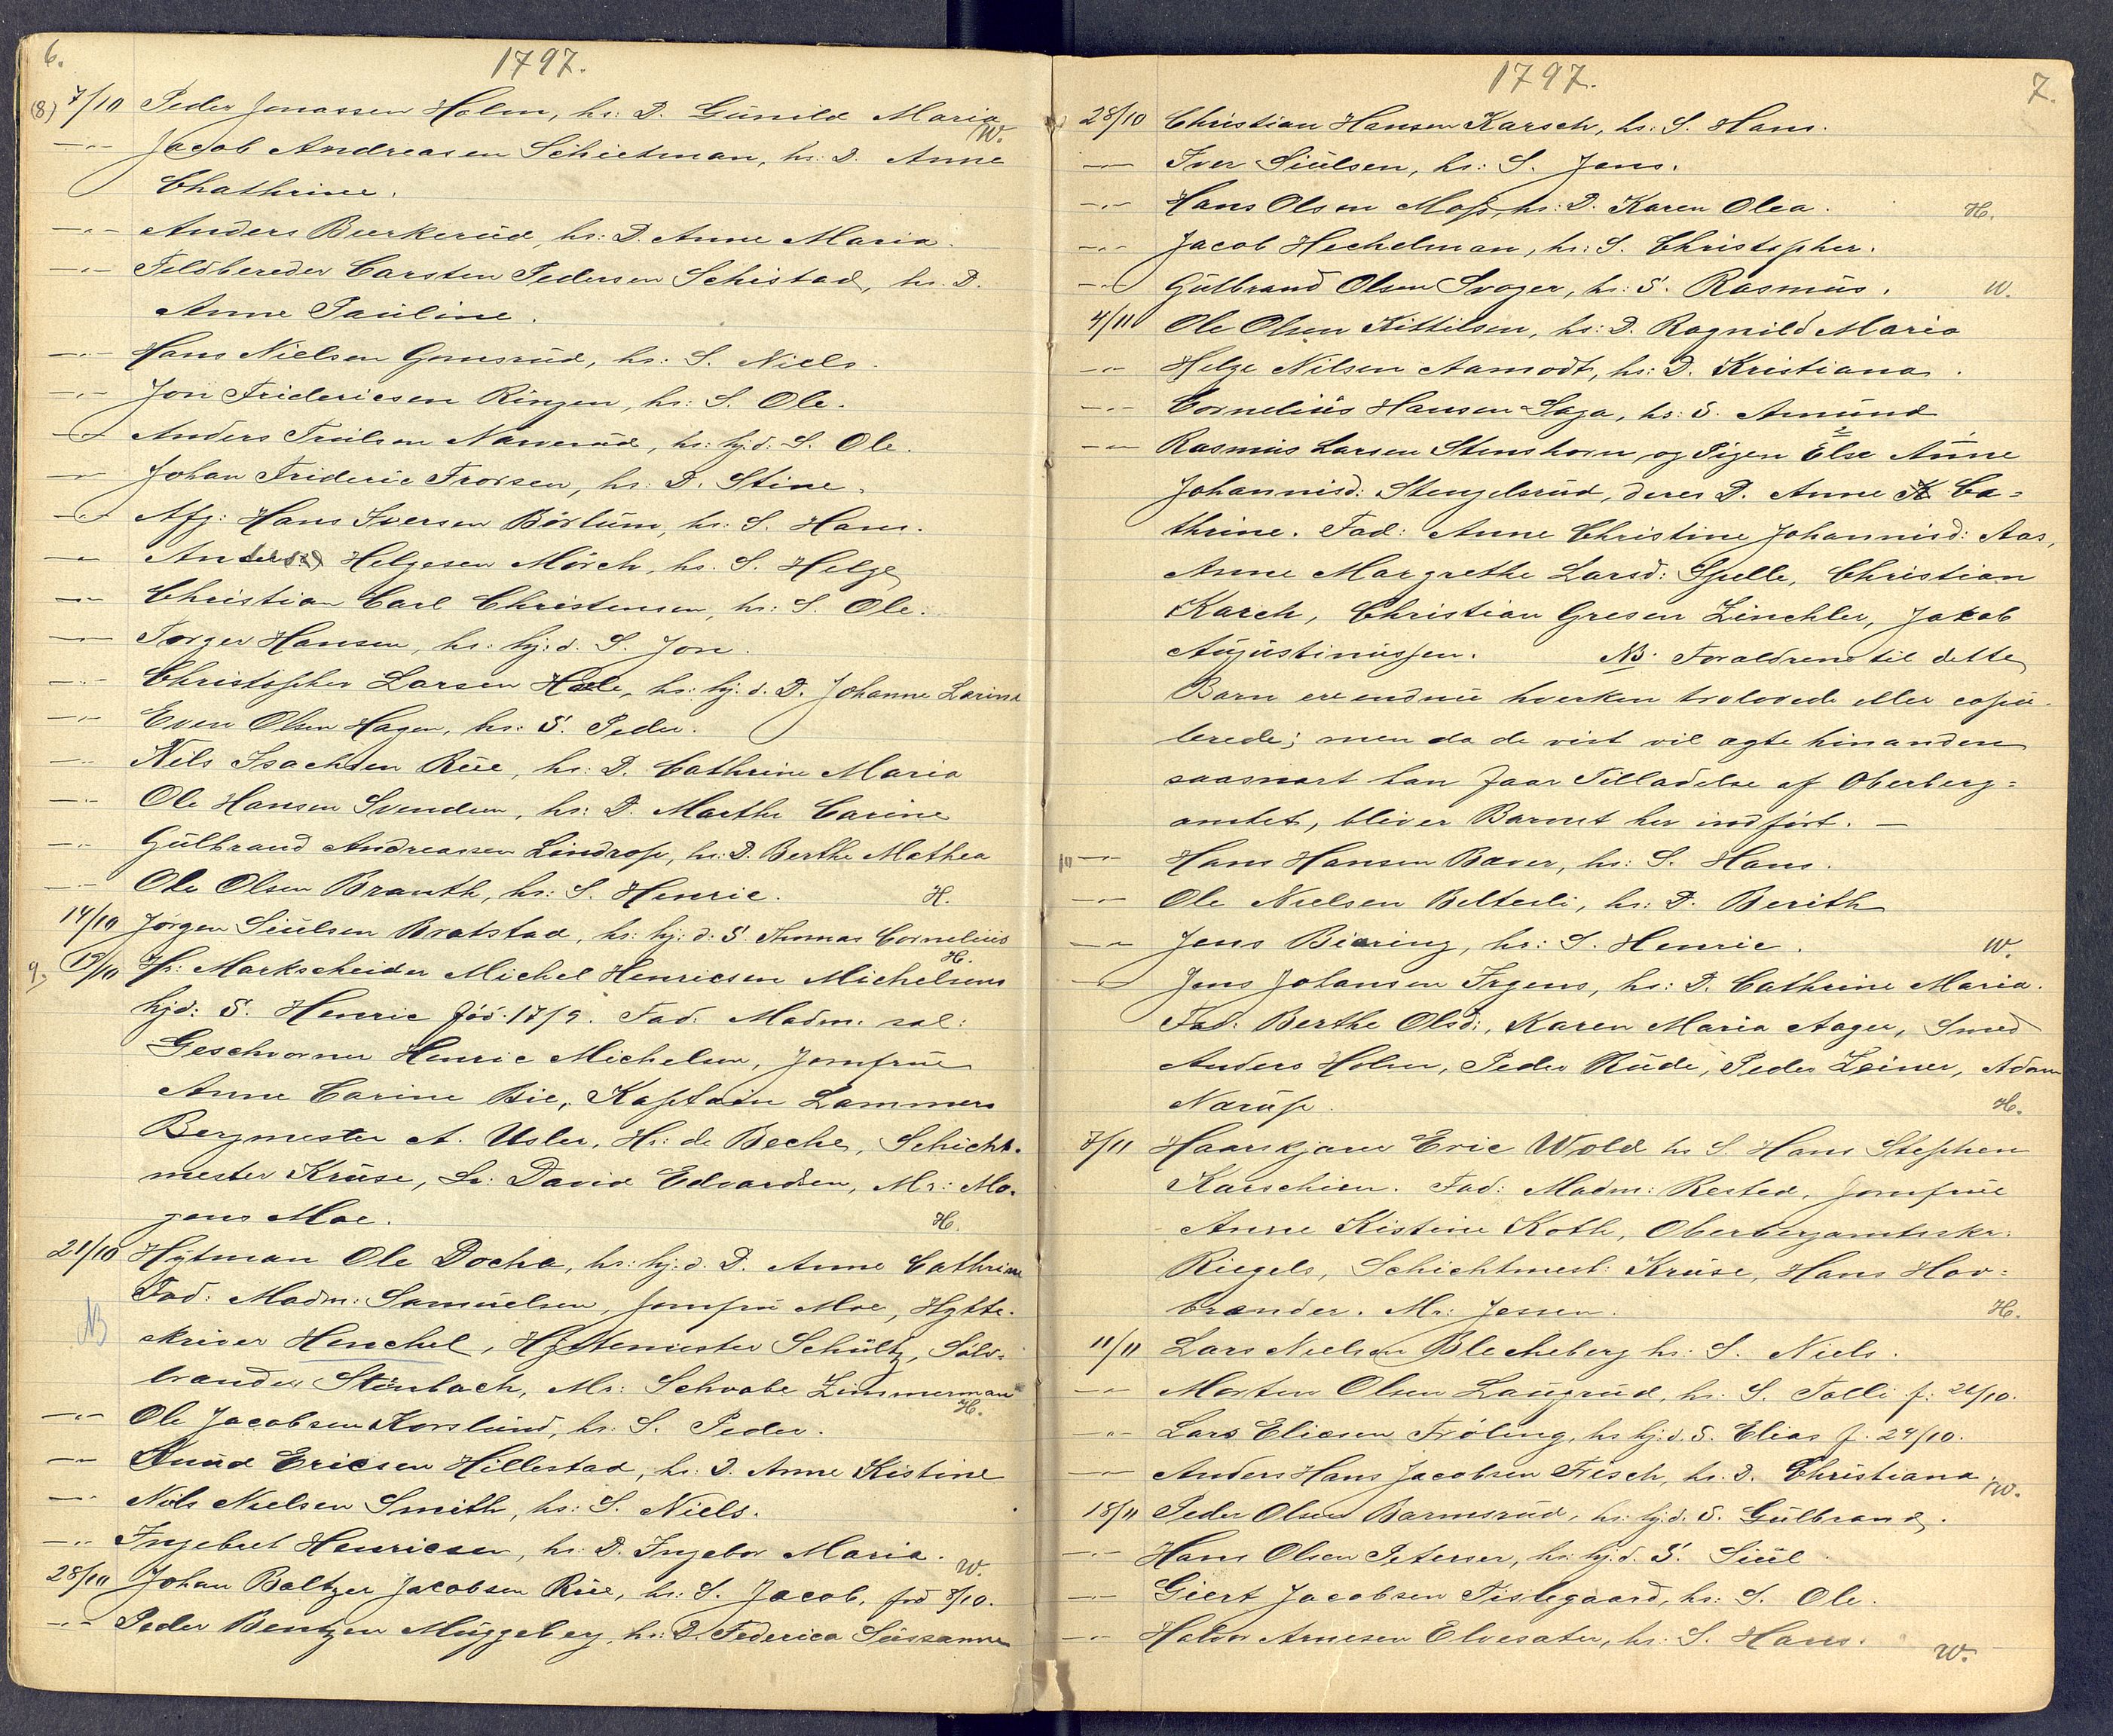 6.
1797.
(8) 7/10 Peder Jonassen Holm, hs: D. Gunild Maria
W.
-"- Jacob Andreasen Schietman, hs: D. Anne
Chathrine.
-"- Anders Burkerud, hs: D. Anne Maria.
-"- Feldbereder Carsten Pedersen Schistad, hs. D.
Anne Pauline.
-"- Hans Nielsen Gomsrud, hs: S. Niels.
-"- Jon Fridericsen Ringen, hs: S. Ole.
-"- Anders Truilsen Narverud, hs: hj:d: S. Ole.
-"- Johan Frideric Frorsen, hs: D. Stine.
-"- Afg: Hans Iversen Börlum, hs: S. Hans.
-"- Anders Helgesen Mörch, hs. S. Helge
-"- Christian Carl Christensen, hs: S. Ole.
-"- Torger Hansen, hs: hj:d. S. Jon.
-"- Christopher Larsen Hæle, hs: hj:d. D. Johanne Larine
-"- Even Olsen Hagen, hs: S. Peder.
-"- Nils Isachsen Rue, hs: D. Cathrine Maria
-"- Ole Hansen Svendsen, hs: D. Marthe Carine
-"- Gulbrand Andreassen Lindrop, hs: D. Berthe Mathea
-"- Ole Olsen Branth, hs: S. Henric. H.
14/10 Jörgen Siulsen Bratstad, hs: hj:d: S. Thomas Cornelius
H.
9) 19/10 Hr: Markscheider Michel Henricsen Michelsens
hjd: S. Henric föd: 17/9. Fad. Madm: sal:
Geschvorner Henric Michelsen, Jomfrue
Anne Carine Bie, Kaptain Lammers
Bergmester A. Usler, Hr: de Beche, Schicht-
mester Kruse, Sr: David Edvardsen, Mr: Mo-
gens Moe. H.
21/10 Hÿtman Ole Docka, hs: hj:d. D. Anne Cathrine
Fad: Madm: Samuelsen, Jomfru Moe, Hytte-
NB skriver Henchel, Hyttemester Schultz, Sölv-
brander Stenbach, Mr: Schvabe Zimmerman
H.
-"- Ole Jacobsen Korslund, hs: S. Peder.
-"- Knud Ericsen Hillestad, hs: D. Anne Kistine
-"- Nils Nielsen Smith, hs: S. Niels.
-"- Ingebret Henricsen, hs: D. Ingebor Maria. W.
28/10 Johan Baltzer Jacobsen Rue, hs: S. Jacob, fød 8/10.
-"- Peder Bentzen Muggeberg, hs: D. Federica Sussanne
1797.
7.
28/10 Christian Hansen Karsch, hs: S. Hans.
-"- Iver Siulsen, hs: S. Jens.
-"- Hans Olsen Moss, hs: D. Karen Olea. H.
-"- Jacob Hechelman, hs: S. Christopher.
-"- Gulbrand Olsen Svager, hs: S. Rasmus. W.
4/11 Ole Olsen Kittilsen, hs: D. Ragnild Maria
-"- Helge Nilsen Aamodt, hs: D. Kristiana.
-"- Cornelius Hansen Saga, hs: S. Amund
-"- Rasmus Larsen Stenshorn, og Pigen Else Anne
Johannisd: Stengelsrud, deres D. Anne Ca-
thrine. Fad: Anne Christine Johannisd: Aas,
Anne Margrethe Larsd: Spelle, Christian
Karch, Christian Gresen Zinchler, Jakob
Augustinussen. NB. Foraldrene til dette
Barn ere endnu hverken trolovede eller copu-
lerede; men da de vist vil agte hinanden
saasnart han faar Tilladelse af Oberberg-
amtet, bliver Barnet her indfört. -
10 -"- Hans Hansen Baver, hs: S. Hans.
-"- Ole Nielsen Belterli, hs: D. Berith
-"- Jens Biering, hs: S. Henric. W.
-"- Jens Johansen Irgens, hs: D. Cathrine Maria.
Fad: Berthe Olsd:, Karen Maria Aager, Smed
Anders Holm, Peder Rude, Peder Zeiner, Adam
Narup. H.
7/11 Haarskjærer Eric Wold hs S. Hans Stephen
Karschien. Fad: Madm: Rested, Jomfrue
Anne Kistine Koth, Oberbergamtsskr:
Riegels, Schichtmest: Kruse, Hans Hov-
brander. Mr: Jessen. H.
11/11 Lars Nielsen Blecheberg hs: S. Niels.
-"- Morten Olsen Laugrud, hs: S. Tolli f: 21/10.
-"- Lars Eliesen Fröling, hs hj:d. S. Elias f. 29/10.
-"- Anders Hans Jacobsen Frisch, hs. D. Christiana.
W.
18/11 Peder Olsen Barmsrud, hs: hj:d. S. Gulbrand.
-"- Hans Olsen Peterser, hs: hj:d. S. Siul
-"- Giert Jacobsen Tislegaard, hs: S. Ole.
-"- Halvor Arnesen Elvesater, hs: S. Hans. W.